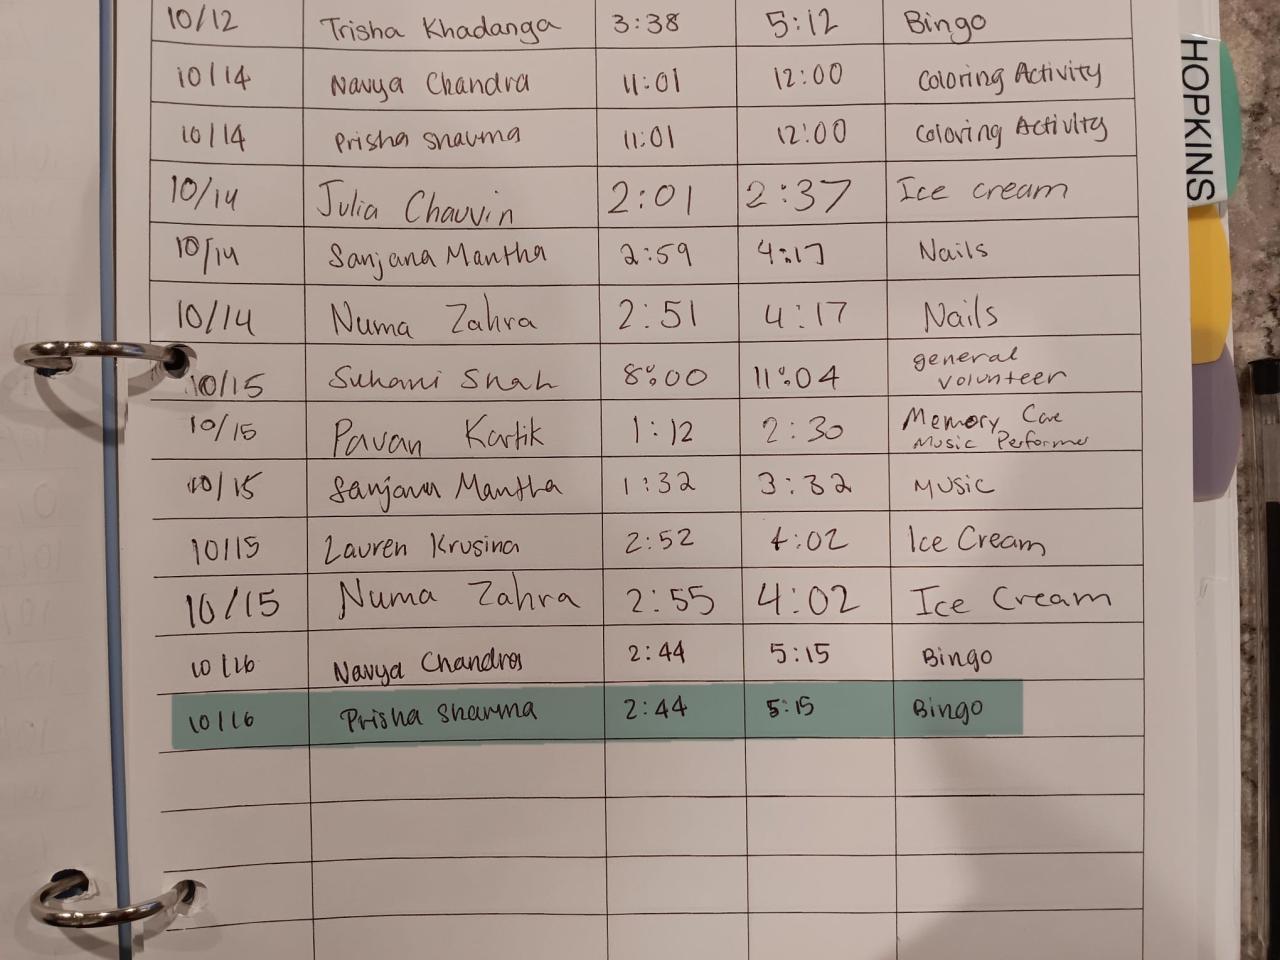 10/12 Trisha Khadanga 3:38 5:12 Bingo
10/14 Navya Chandra 11:01 12:00 Coloring Activity
10/14 Prisha Sharma 11:01 12:00 Coloring Activity
10/14 Julia Chauvin 2:01 2:37 Ice cream
10/14 Sanjana Mantha 2:59 4:17 Nails
10/14 Numa Zahra 2:51 4:17 Nails
10/15 Suhani Shah 8:00 11:04 general volunteer
10/15 Pavan Kartik 1:12 2:30 Memory Care Music Performer
10/15 Sanjana Mantha 1:32 3:32 Music
10/15 Lauren Krusina 2:52 4:02 Ice Cream
10/15 Numa Zahra 2:55 4:02 Ice Cream
10/16 Navya Chandra 2:44 5:15 Bingo
10/16 Prisha Sharma 2:44 5:15 Bingo
HOPKINS